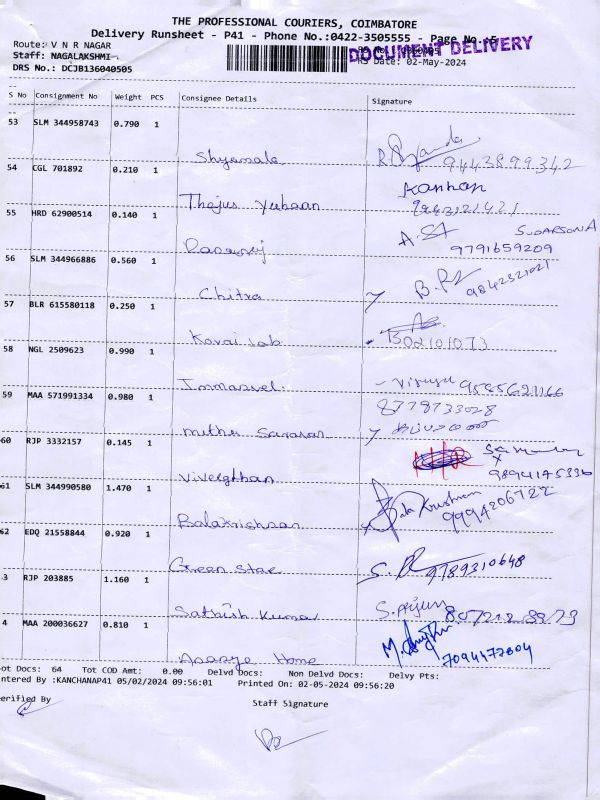 THE PROFESSIONAL COURIERS, COIMBATORE
Delivery Runsheet - P41 - Phone No.:0422-3505555 - Page No.:5
DOCUMENT DELIVERY
Route: V N R NAGAR
Staff: NAGALAKSHMI
Date: 02-May-2024
DRS No.: DCJB136040505
S No Consignment No Weight PCS Consignee Details Signature
53 SLM 344958743 0.790 1
Shyamala 9443899342
54 CGL 701892 0.210 1 Kannan
Thejus
55 HRD 62900514 0.140 1 SUDARSON A
9791659209
56 SLM 344966886 0.560 1
Chitra 9842321021
57 BLR 615580118 0.250 1
Kovai lab
58 NGL 2509623 0.990 1
Immanvel
59 MAA 571991334 0.980 1 8778733028
Muthu Saravan
60 RJP 3332157 0.145 1
9894145336
61 SLM 344990580 1.470 1
Balakrishnan 9994206722
62 EDQ 21558844 0.920 1
Green Star 9789310648
3 RJP 203885 1.160 1
Sathish Kumar
4 MAA 200036627 0.810 1
Home 7094472804
ot Docs: 64 Tot COD Amt: 0.00 Delvd Docs: Non Delvd Docs: Delvy Pts:
ntered By :KANCHANAP41 05/02/2024 09:56:01 Printed On: 02-05-2024 09:56:20
erified By Staff Signature